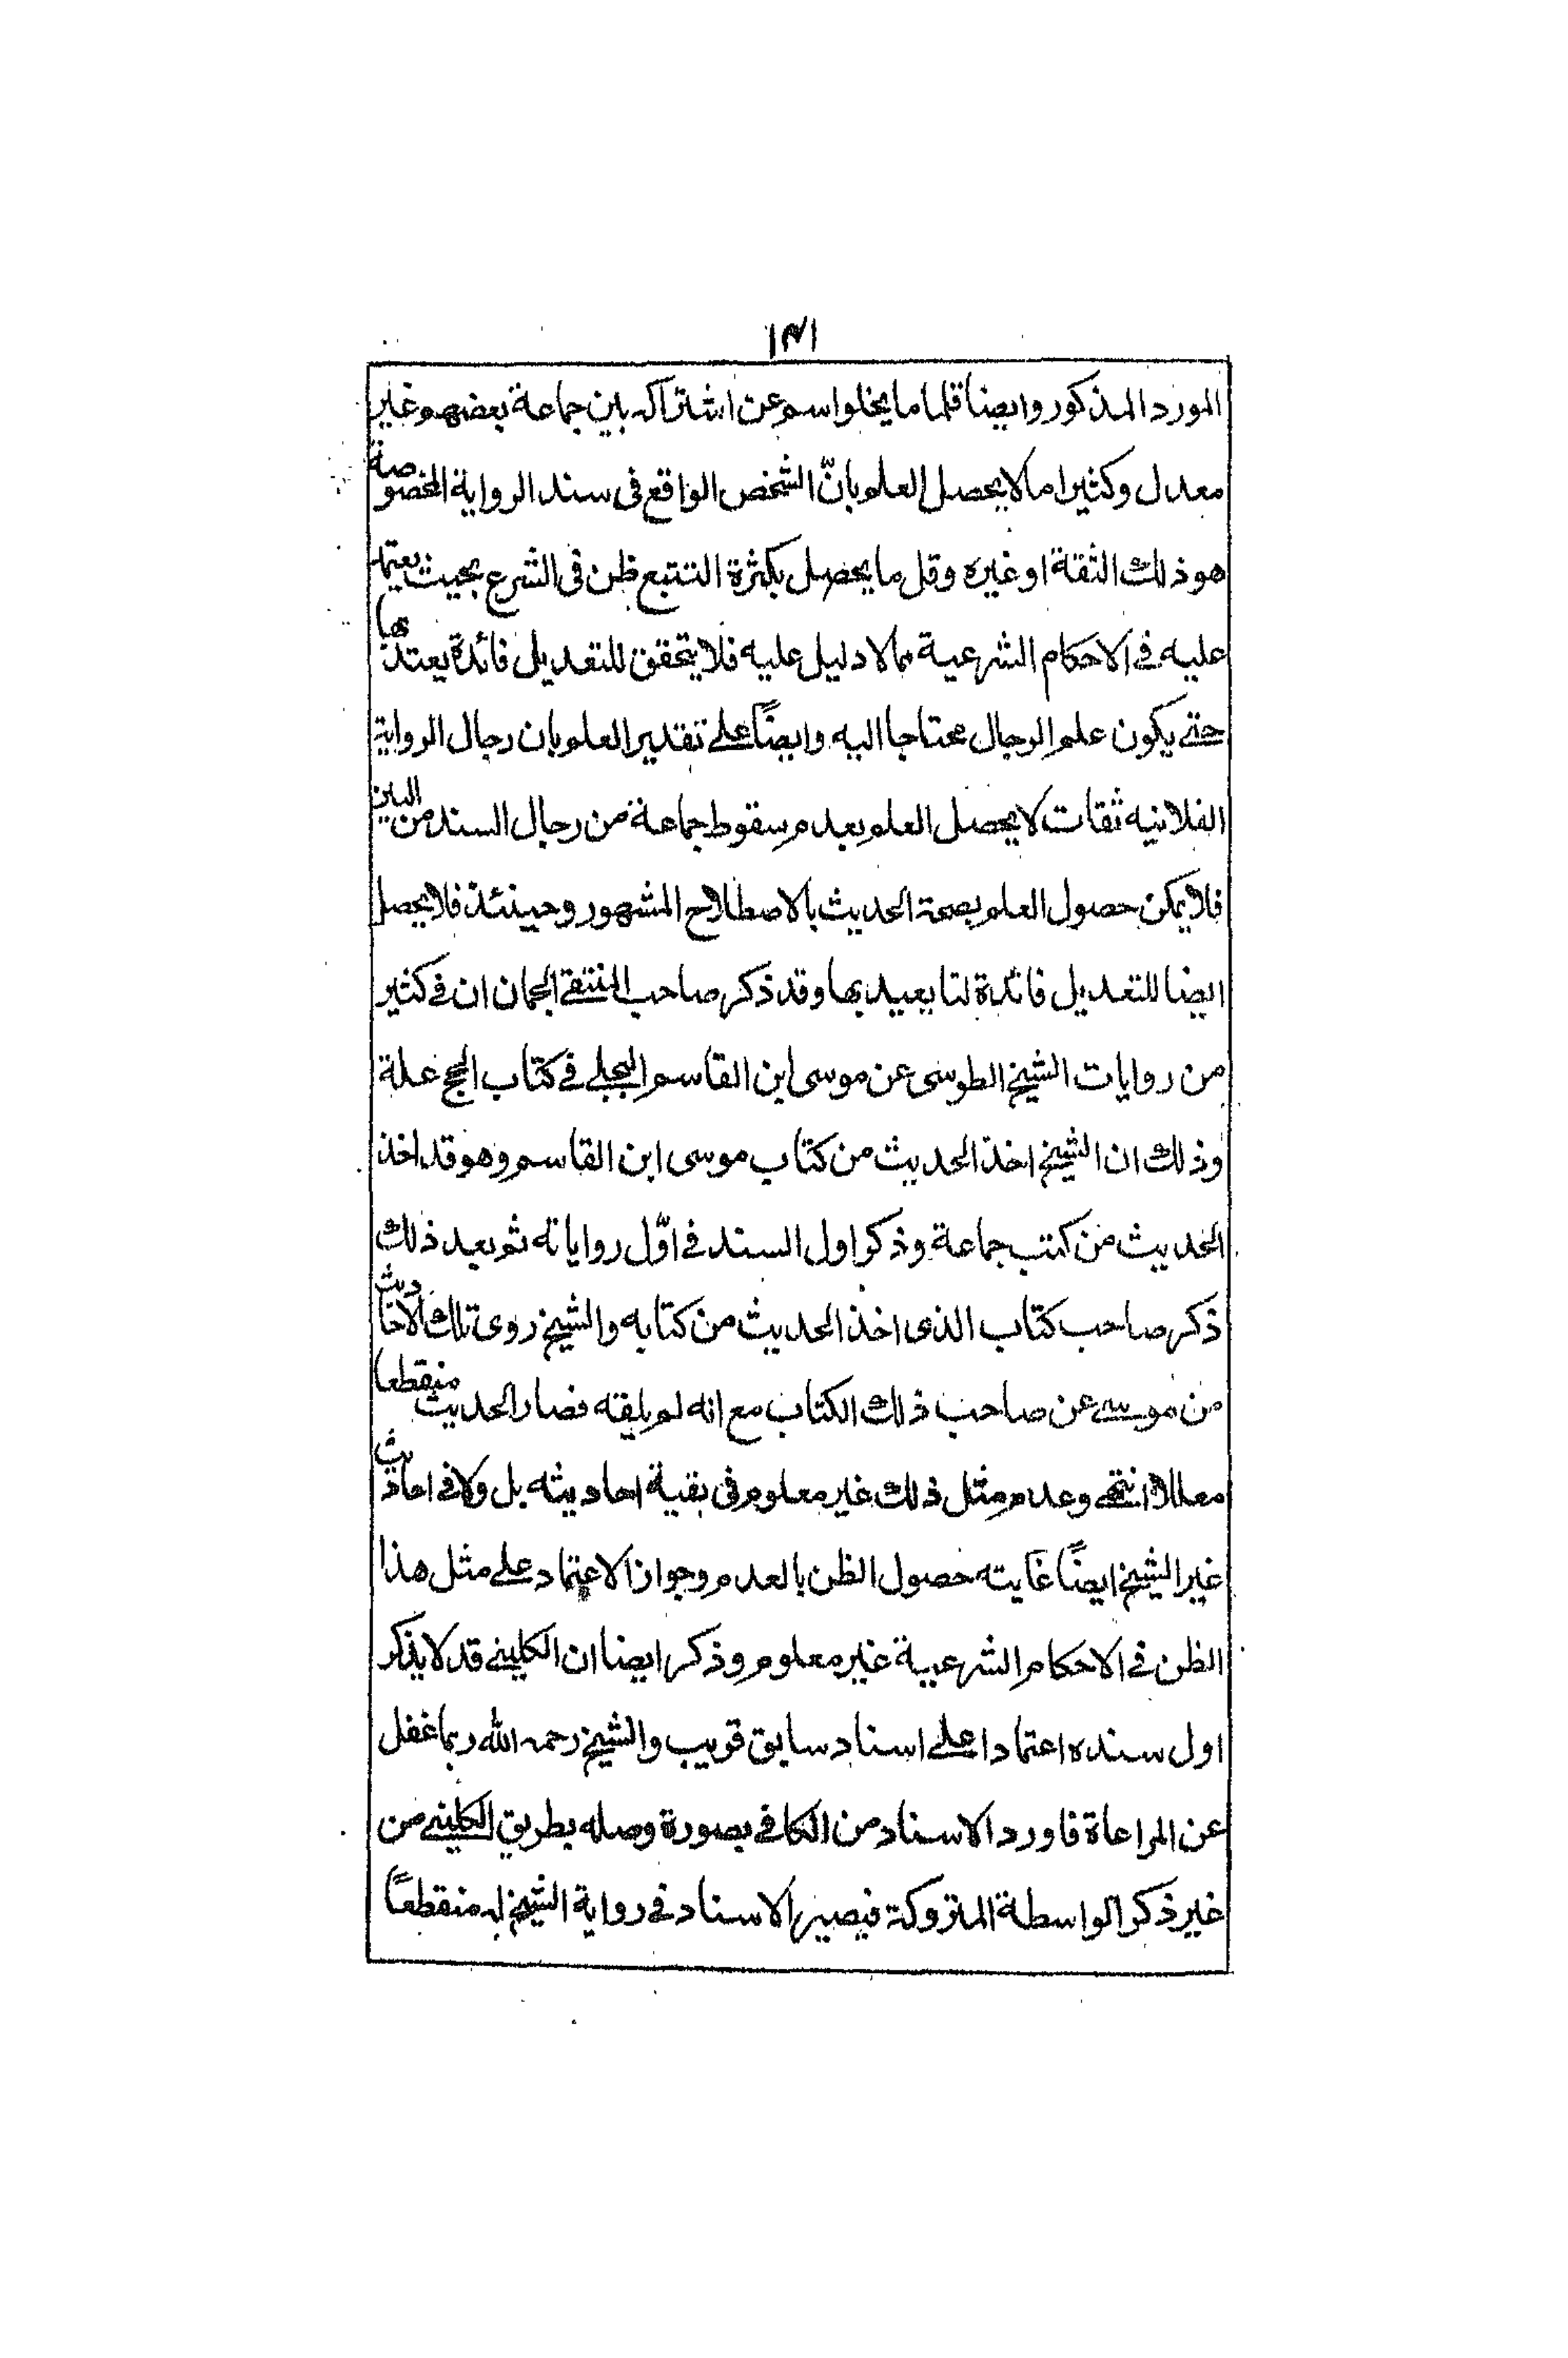 ١٣١
المورد المذكور وايضا قلما ما يخلوا اسم عن اشتراكه بين جماعة بعضهم غير
معدل وكثيرا ما لا يحصل العلم بانّ الشخص الواقع فى سند الرواية المخصوصة
هو ذلك الثقة او غيره وقل ما يحصل بكثرة التتبع ظن فى الشرع بحيث يعتمد
عليه فى الاحكام الشرعية مما لا دليل عليه فلا يتحقق للتعديل فائدة يعتدّ بها
حتى يكون علم الرجال محتاجا اليه وايضًا على تقدير العلم بان رجال الرواية
الفلانيه ثقات لا يحصل العلم بعدم سقوط جماعة من رجال السند من البين
فلا يمكن حصول العلم بصحة الحديث بالاصطلاح المشهور وحينئذ فلا يحصل
ايضا للتعديل فائدة لنا يعبد بها وقد ذكر صاحب المنتقى الجمان ان فى كثير
من روايات الشيخ الطوسى عن موسى ابن القاسم البجلى فى كتاب الحج علة
وذلك ان الشيخ اخذ الحديث من كتاب موسى ابن القاسم وهو قد اخذ
الحديث من كتب جماعة وذكر اول السند فى اوّل رواياته ثم بعد ذلك
ذكر صاحب كتاب الذى اخذ الحديث من كتابه والشيخ روى تلك الاحاديث
من موسى عن صاحب ذلك الكتاب مع انه لم يلقه فصار الحديث منقطعا
معللا انتهى وعدم مثل ذلك غير معلوم فى بقية احاديثه بل ولا فى احاديث
غير الشيخ ايضًا غايته حصول الظن بالعدم وجواز الاعتماد على مثل هذا
الظن فى الاحكام الشرعية غير معلوم وذكر ايضا ان الكلينى قد لا يذكر
اول سنده اعتمادا على اسناد سابق قريب والشيخ رحمه الله ربما غفل
عن المراعاة فاورد الاسناد من الكافى بصورة وصله بطريق الكلينى من
غير ذكر الواسطة المتروكة فيصير الاسناد فى رواية الشيخ له منقطعًا